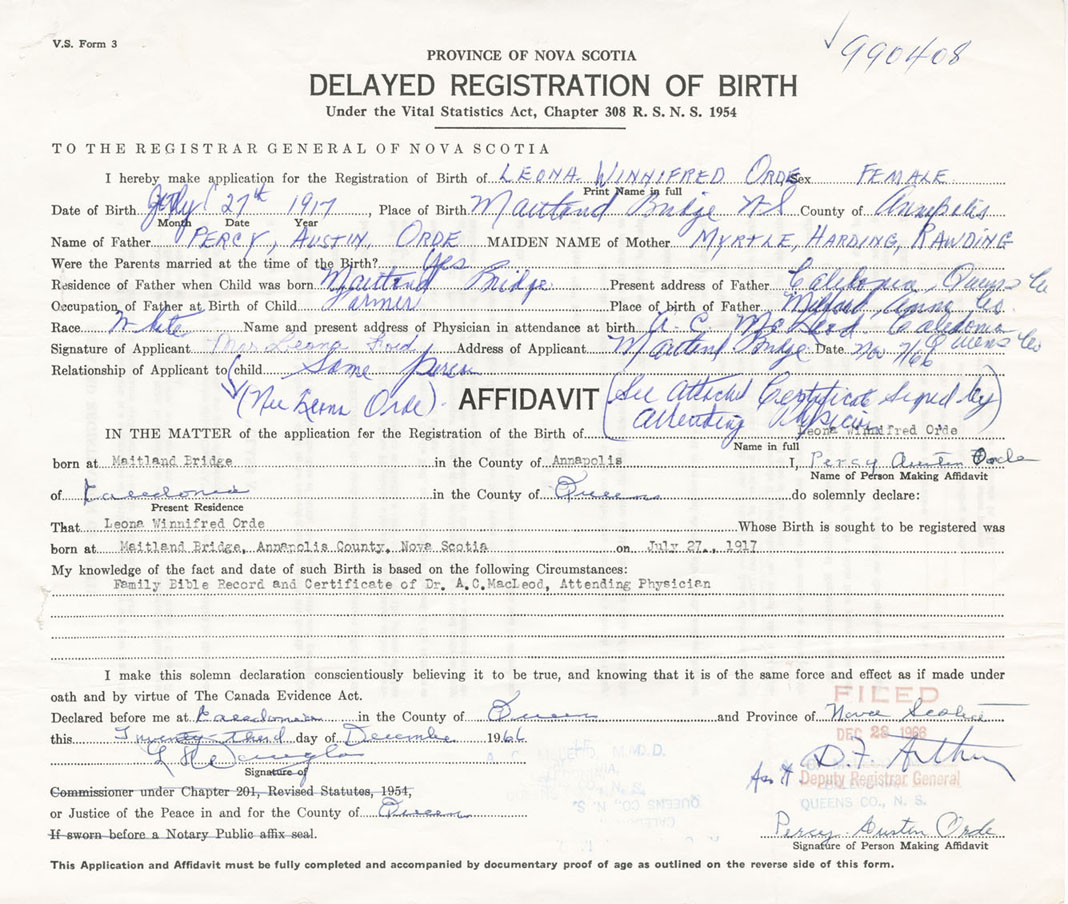 V.S. Form 3
990408
PROVINCE OF NOVA SCOTIA
DELAYED REGISTRATION OF BIRTH
Under the Vital Statistics Act, Chapter 308 R. S. N. S. 1954
TO THE REGISTRAR GENERAL OF NOVA SCOTIA
I hereby make application for the Registration of Birth of LEONA WINNIFRED ORDE Sex FEMALE
Print Name in full
Date of Birth July 27th 1917, Place of Birth Maitland Bridge NS County of Annapolis
Month Date Year
Name of Father PERCY, AUSTIN, ORDE MAIDEN NAME of Mother MYRTLE, HARDING, RAWDING
Were the Parents married at the time of the Birth? Yes
Residence of Father when Child was born Maitland Bridge Present address of Father Caledonia, Queens Co
Occupation of Father at Birth of Child Farmer Place of birth of Father Milford, Anna Co.
Race White Name and present address of Physician in attendance at birth A. C. McLeod Caledonia Queens Co
Signature of Applicant Mrs Leona Ford Address of Applicant Maitland Bridge Date Nov 7/66
Relationship of Applicant to child Same Person
(Nee Leona Orde) AFFIDAVIT (See Attached Certificate Signed by Attending Physician)
IN THE MATTER of the application for the Registration of the Birth of Leona Winnifred Orde
Name in full
born at Maitland Bridge in the County of Annapolis I, Percy Austin Orde
Name of Person Making Affidavit
of Caledonia in the County of Queens do solemnly declare:
Present Residence
That Leona Winnifred Orde Whose Birth is sought to be registered was
born at Maitland Bridge, Annapolis County, Nova Scotia on July 27., 1917
My knowledge of the fact and date of such Birth is based on the following Circumstances:
Family Bible Record and Certificate of Dr. A.C.MacLeod, Attending Physician
I make this solemn declaration conscientiously believing it to be true, and knowing that it is of the same force and effect as if made under
oath and by virtue of The Canada Evidence Act.
FILED
Declared before me at Caledonia in the County of Queens and Province of Nova Scotia
DEC 28 1966
this Twenty-third day of December 1966
D. F. Arthur
Signature of
Deputy Registrar General
Commissioner under Chapter 201, Revised Statutes, 1954,
QUEENS CO., N. S.
or Justice of the Peace in and for the County of Queens
Percy Austin Orde
If sworn before a Notary Public affix seal.
Signature of Person Making Affidavit
This Application and Affidavit must be fully completed and accompanied by documentary proof of age as outlined on the reverse side of this form.